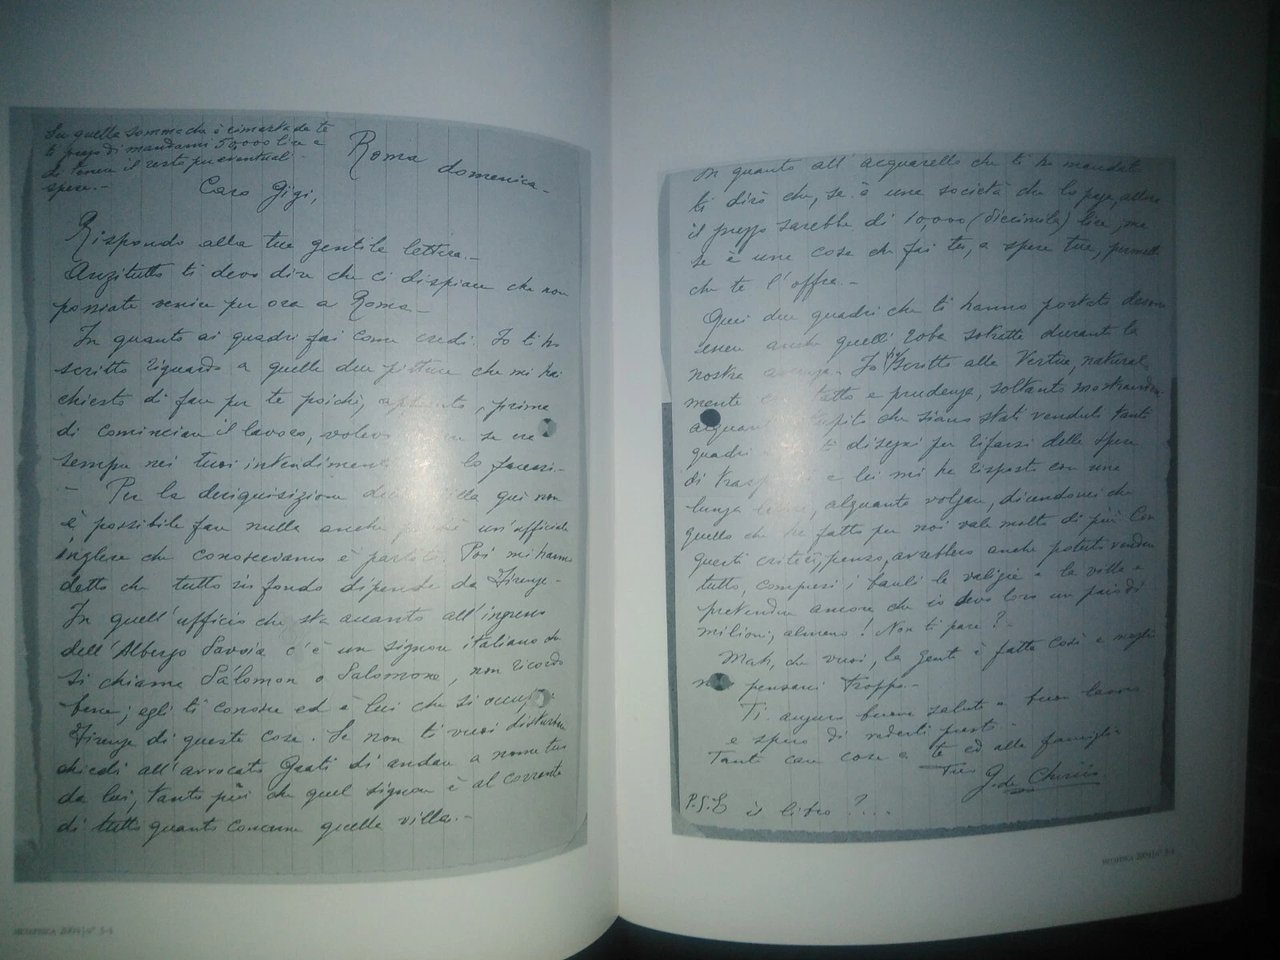 Su quella somma che è rimasta da te
ti prego di mandarmi 50,000 lire e
di tenere il resto per eventuali
spese.-
Roma domenica-
Caro Gigi,
Rispondo alla tua gentile lettera.-
Anzitutto ti devo dire che ci dispiace che non
possiate venire per ora a Roma.-
In quanto ai quadri fai come credi. Io ti ho
scritto riguardo a quelle due pitture che mi hai
chiesto di fare per te poiché, appunto, prima
di cominciare il lavoro, volevo se era
sempre nei tuoi intendimenti lo facessi.-
- Per la derequisizione villa qui non
è possibile fare nulla anche un'ufficiale
inglese che conoscevamo è partito. Poi mi hanno
detto che tutto in fondo dipende da Firenze-
In quell'ufficio che sta accanto all'ingresso
dell'Albergo Savoia c'è un signore italiano che
si chiama Sálomon o Salomone, non ricordo
bene; egli ti conosce ed è lui che si occupa
Firenze di queste cose. Se non ti vuoi disturbare
chiedi all'avvocato di andare a nome tuo
da lui, tanto più che quel signore è al corrente
di tutto quanto concerne quella villa.-
In quanto all'acquarello che ti ho mandato
ti dirò che, se è una società che lo paga, allora
il prezzo sarebbe di 10,000 (diecimila) lire, ma
se è una cosa che fai tu, a spese tue, permetti
che te l'offra.-
Quei due quadri che ti hanno portato devono
essere anche quelli roba sottratta durante la
nostra assenza. Io scritto alla Vertua, natural
mente tatto e prudenza, soltanto mostrandomi
alquanto stupito che siano stati venduti tanti
quadri disegni per rifarsi delle spese
di e lei mi ha risposto con una
lunga lettera, alquanto volgare, dicendomi che
quello che ha fatto per noi vale molto di più. Con
questi criteri, penso, avrebbero anche potuto vendere
tutto, compresi i bauli le valigie e la villa e
pretendere ancora che io devo loro un paio di
milioni, almeno! Non ti pare?-
Mah, che vuoi, la gente è fatta così e meglio
pensarci troppo-
Ti auguro buona salute e buon lavoro
e spero di vederti presto-
Tante care cose a te ed alla famiglia
Tuo G. de Chirico
P.S. E il libro?....
METAFISICA 2004|N° 3-4
METAFISICA 2004|N° 3-4